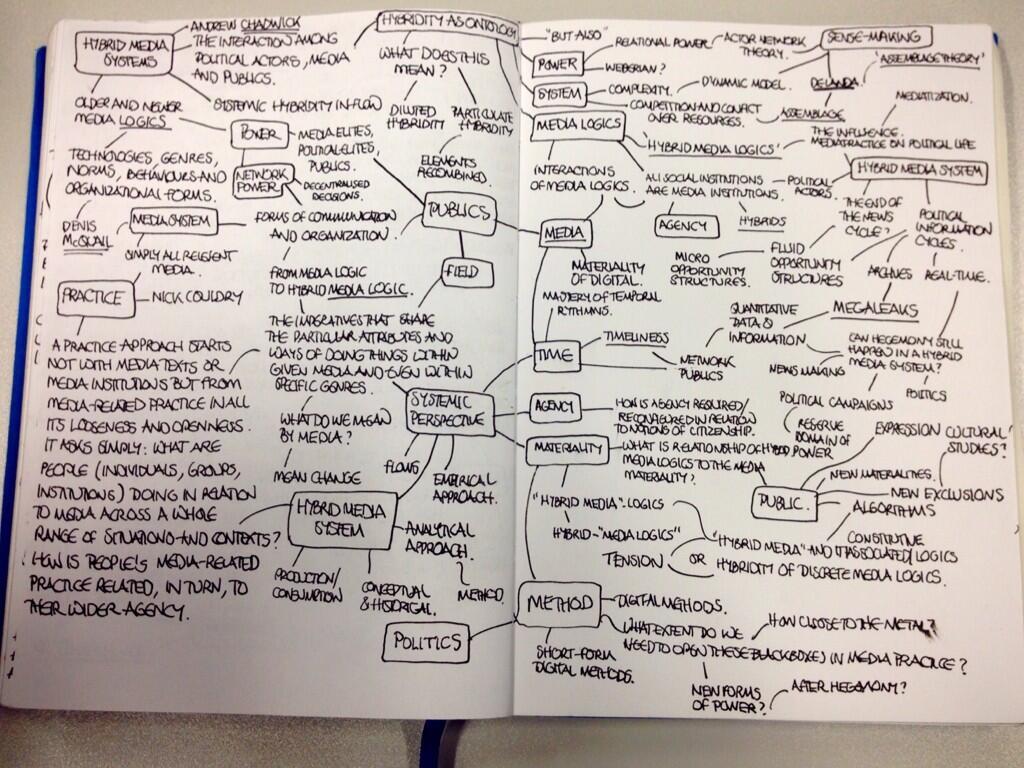 HYBRID MEDIA
SYSTEMS
ANDREW CHADWICK
THE INTERACTION AMONG
POLITICAL ACTORS, MEDIA
AND PUBLICS.
SYSTEMIC HYBRIDITY IN FLOW
OLDER AND NEWER
MEDIA LOGICS
TECHNOLOGIES, GENRES,
NORMS, BEHAVIOURS AND
ORGANIZATIONAL FORMS.
DENIS
McQUAIL
POWER
MEDIA ELITES,
POLITICAL ELITES,
PUBLICS.
NETWORK
POWER
DECENTRALISED
DECISIONS.
MEDIA SYSTEM
FORMS OF COMMUNICATION
AND ORGANIZATION.
SIMPLY ALL RELEVENT
MEDIA.
PRACTICE
NICK COULDRY
A PRACTICE APPROACH STARTS
NOT WITH MEDIA TEXTS OR
MEDIA INSTITUTIONS BUT FROM
MEDIA-RELATED PRACTICE IN ALL
ITS LOOSENESS AND OPENNESS.
IT ASKS SIMPLY: WHAT ARE
PEOPLE (INDIVIDUALS, GROUPS,
INSTITUTIONS) DOING IN RELATION
TO MEDIA ACROSS A WHOLE
RANGE OF SITUATIONS AND CONTEXTS?
HOW IS PEOPLE'S MEDIA-RELATED
PRACTICE RELATED, IN TURN, TO
THEIR WIDER AGENCY.
HYBRIDITY AS ONTOLOGY
WHAT DOES THIS
MEAN?
DILUTED
HYBRIDITY
PARTICULATE
HYBRIDITY
ELEMENTS
RECOMBINED.
PUBLICS
FIELD
FROM MEDIA LOGIC
TO HYBRID MEDIA LOGIC.
THE IMPERATIVES THAT SHAPE
THE PARTICULAR ATTRIBUTES AND
WAYS OF DOING THINGS WITHIN
GIVEN MEDIA AND EVEN WITHIN
SPECIFIC GENRES.
WHAT DO WE MEAN
BY MEDIA?
MEAN CHANGE
SYSTEMIC
PERSPECTIVE
FLOWS
EMPIRICAL
APPROACH.
HYBRID MEDIA
SYSTEM
ANALYTICAL
APPROACH.
METHOD.
PRODUCTION/
CONSUMPTION
CONCEPTUAL
& HISTORICAL.
POLITICS
"BUT ALSO"
POWER
RELATIONAL POWER
ACTOR NETWORK
THEORY.
WEBERIAN?
SENSE-MAKING
'ASSEMBLAGE THEORY'
DELANDA
ASSEMBLAGE
SYSTEM
COMPLEXITY.
DYNAMIC MODEL.
COMPETITION AND CONFLICT
OVER RESOURCES.
MEDIA LOGICS
'HYBRID MEDIA LOGICS'
MEDIATIZATION.
THE INFLUENCE
MEDIA PRACTICE ON POLITICAL LIFE
INTERACTIONS
OF MEDIA LOGICS.
ALL SOCIAL INSTITUTIONS
ARE MEDIA INSTITUTIONS.
POLITICAL
ACTORS.
HYBRID MEDIA SYSTEM
AGENCY
HYBRIDS
THE END OF
THE NEWS
CYCLE?
POLITICAL
INFORMATION
CYCLES.
MEDIA
MATERIALITY
OF DIGITAL.
MICRO
OPPORTUNITY
STRUCTURES.
FLUID
OPPORTUNITY
STRUCTURES
ARCHIVES
REAL-TIME.
MASTERY OF TEMPORAL
RYTHMNS.
TIME
TIMELINESS
NETWORK
PUBLICS
QUANTITATIVE
DATA &
INFORMATION
MEGALEAKS
NEWS MAKING
CAN HEGEMONY STILL
HAPPEN IN A HYBRID
MEDIA SYSTEM?
POLITICS
POLITICAL CAMPAIGNS
AGENCY
HOW IS AGENCY REQUIRED/
RECONFIGURED IN RELATION
TO NOTIONS OF CITIZENSHIP.
RESERVE
DOMAIN OF
POWER
MATERIALITY
WHAT IS RELATIONSHIP OF HYBRID
MEDIA LOGICS TO THE MEDIA
MATERIALITY?
EXPRESSION
CULTURAL
STUDIES?
PUBLIC
NEW MATERIALITIES.
NEW EXCLUSIONS
ALGORITHMS
"HYBRID MEDIA"-LOGICS
HYBRID-"MEDIA LOGICS"
TENSION
CONSTITUTIVE
"HYBRID MEDIA" AND IT ASSOCIATED LOGICS
OR
HYBRIDITY OF DISCRETE MEDIA LOGICS.
METHOD
DIGITAL METHODS.
SHORT-FORM
DIGITAL METHODS.
WHAT EXTENT DO WE
NEED TO OPEN THESE BLACKBOXES IN MEDIA PRACTICE?
HOW CLOSE TO THE METAL?
NEW FORMS
OF POWER?
AFTER HEGEMONY?